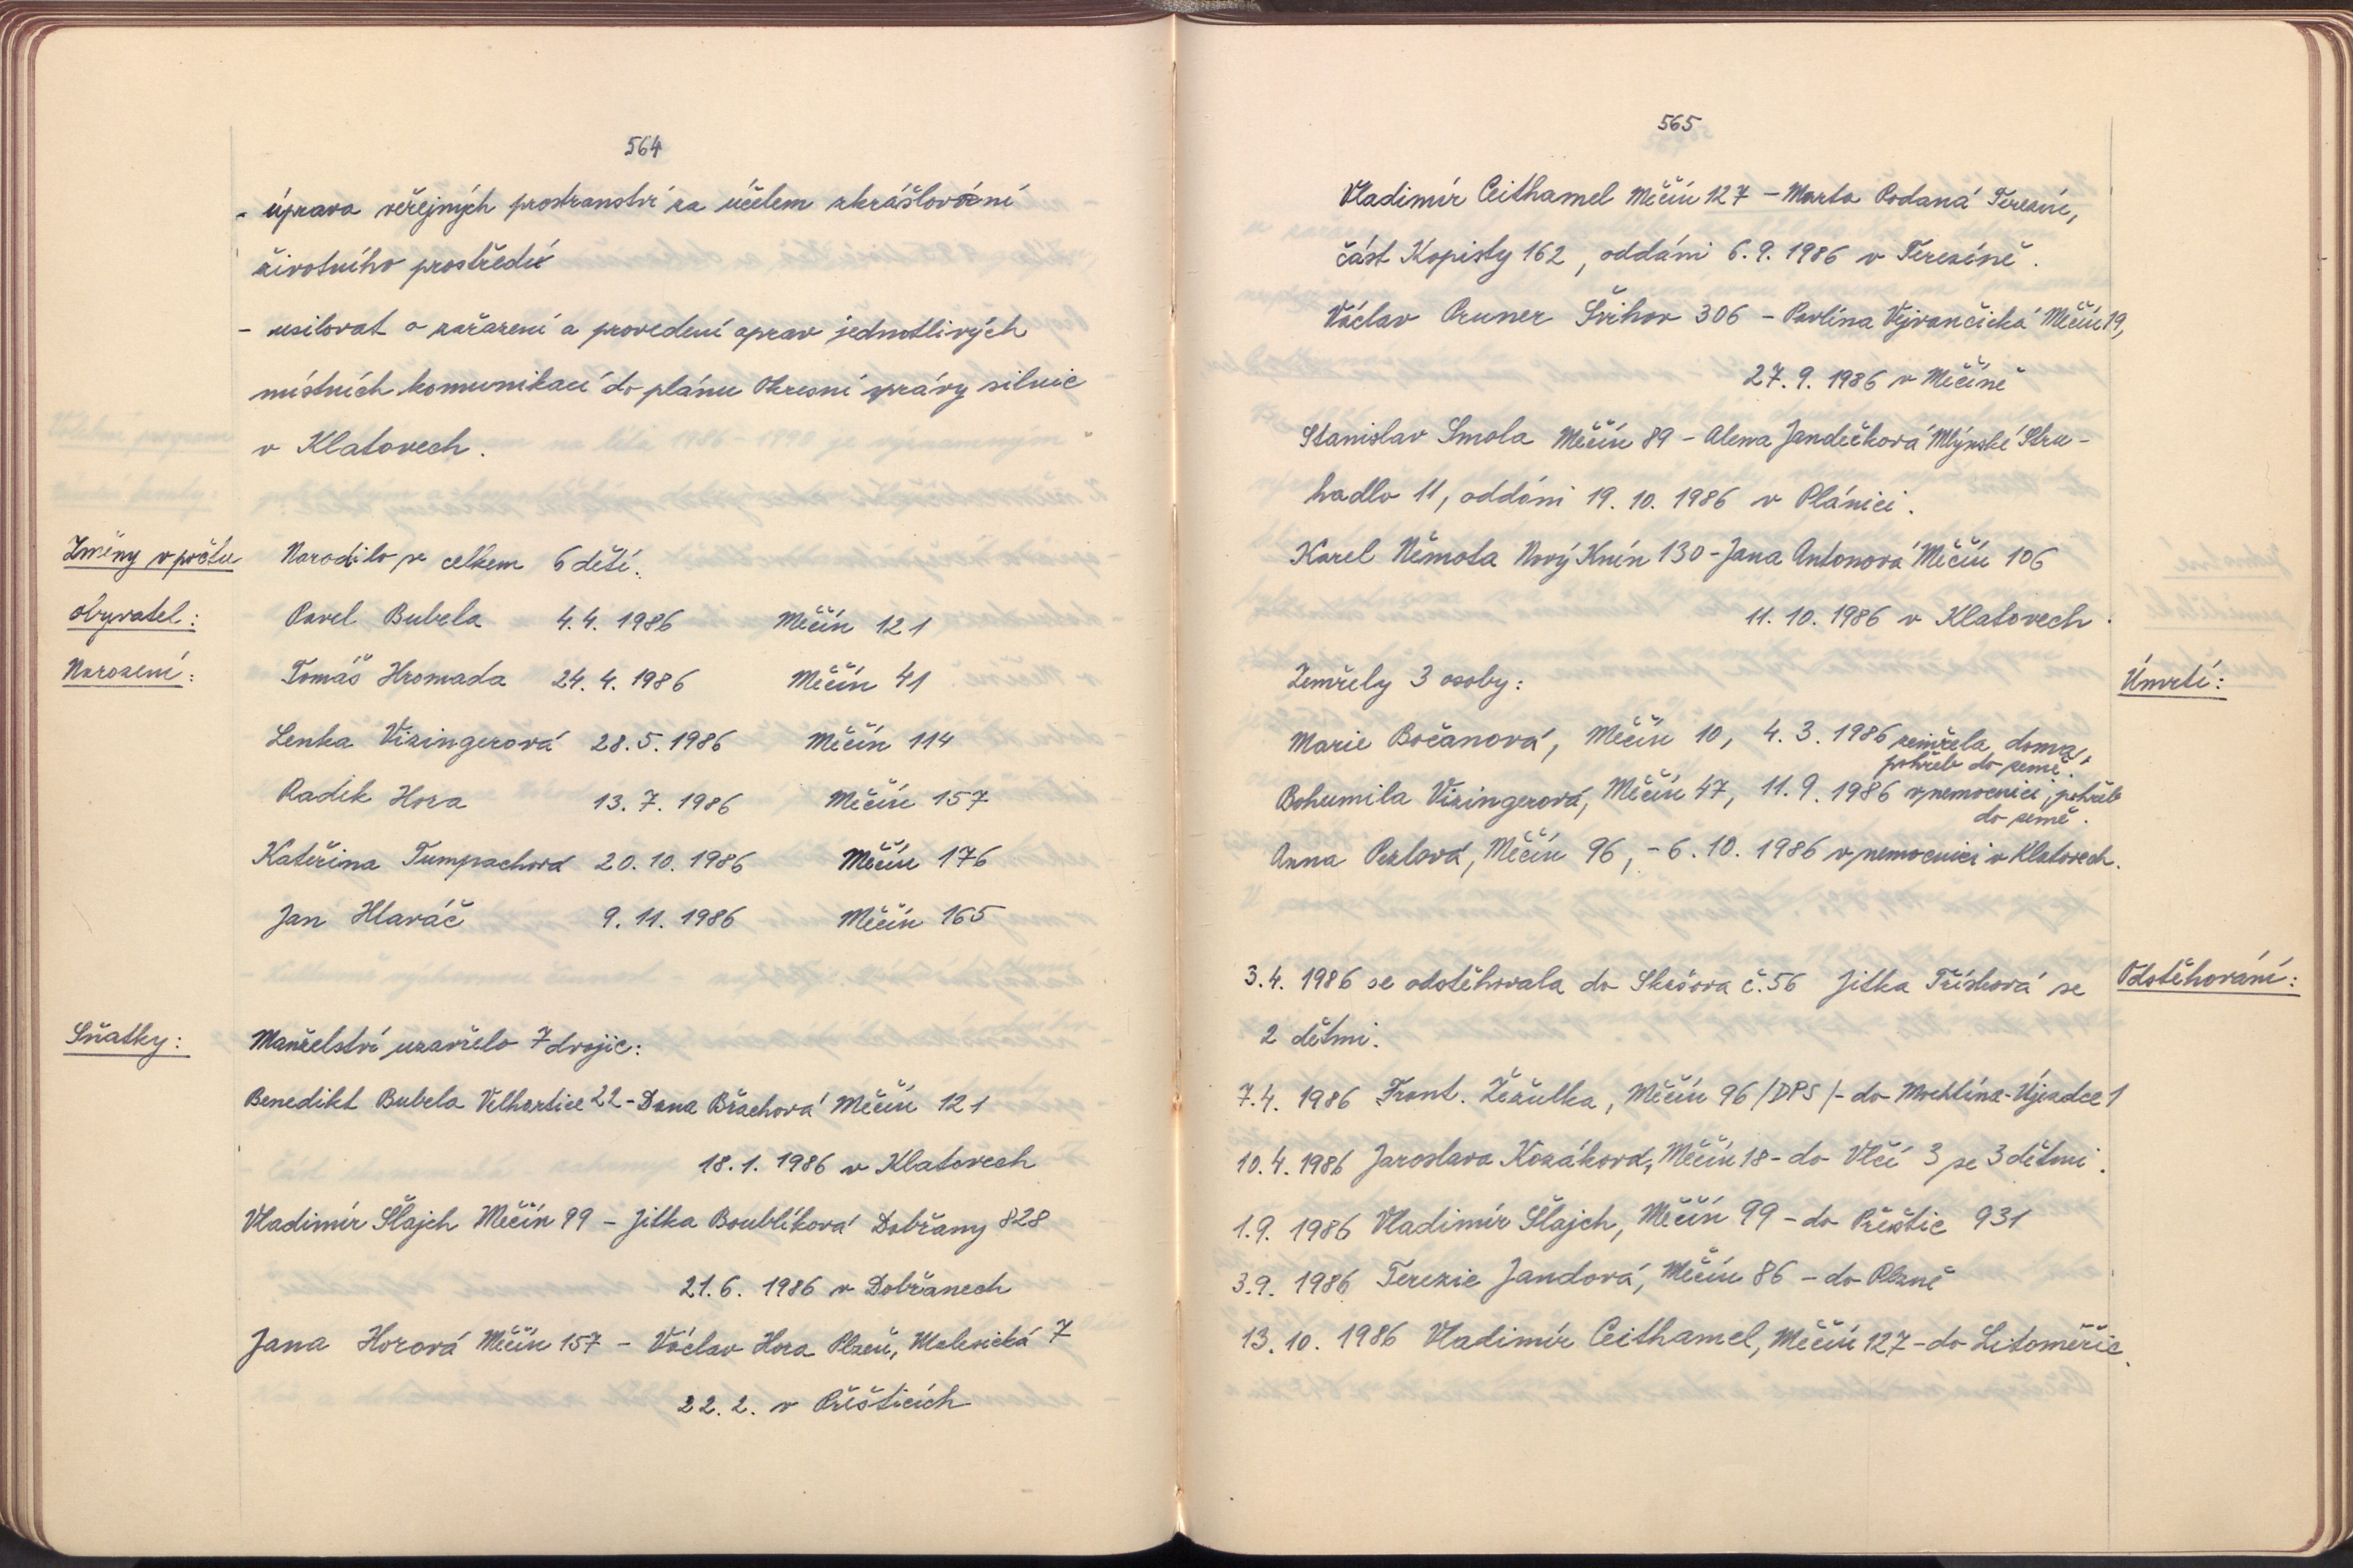 564
- úprava veřejných prostranství za účelem zkrášlování
životního prostředí
- usilovat o zařazení a provedení oprav jednotlivých
místních komunikací do plánu Okresní správy silnic
v Klatovech.
Změny v počtu
obyvatel:
Narození:
Narodilo se celkem 6 dětí.
Pavel Bubela 4.4. 1986 Měčín 121
Tomáš Hromada 24. 4. 1986 Měčín 41
Lenka Vizingerová 28. 5. 1986 Měčín 114
Radek Hora 13. 7. 1986 Měčín 157
Kateřina Tumpachová 20. 10. 1986 Měčín 176
Jan Hlaváč 9. 11. 1986 Měčín 165
Sňatky:
Manželství uzavřelo 7 dvojic:
Benedikt Bubela Velhartice 22 - Dana Brachová Měčín 121
18. 1. 1986 v Klatovech
Vladimír Šlajch Měčín 99 - Jitka Boublíková Dobřany 828
21. 6. 1986 v Dobřanech
Jana Horová Měčín 157 - Václav Hora Plzeň, Malesická 7
22. 2. v Přešticích
565
Vladimír Ceithamel Měčín 127 - Marta Podaná Terezín,
část Kopisty 162, oddáni 6. 9. 1986 v Terezíně.
Václav Pruner Švihov 306 - Pavlína Vejvančická Měčín 19,
27. 9. 1986 v Měčíně
Stanislav Smola Měčín 89 - Alena Jandečková Mlýnské Stru-
hadlo 11, oddáni 19. 10. 1986 v Plánici.
Karel Němota Nový Knín 130 - Jana Antonová Měčín 106
11. 10. 1986 v Klatovech.
Úmrtí:
Zemřely 3 osoby:
Marie Bočanová, Měčín 10, 4. 3. 1986 zemřela doma,
pohřeb do země.
Bohumila Vizingerová, Měčín 47, 11. 9. 1986 v nemocnici, pohřeb
do země.
Anna Pezlová, Měčín 96, - 6. 10. 1986 v nemocnici v Klatovech.
Odstěhování:
3. 4. 1986 se odstěhovala do Skašova č. 56 Jitka Tříšková se
2 dětmi.
7. 4. 1986 Frant. Žežulka, Měčín 96 /DPS/ - do Mochtína-Újezdce 1
10. 4. 1986 Jaroslava Kozáková, Měčín 18 - do Vlčí 3 se 3 dětmi.
1. 9. 1986 Vladimír Šlajch, Měčín 99 - do Přeštic 931
3. 9. 1986 Terezie Jandová, Měčín 86 - do Plzně
13. 10. 1986 Vladimír Ceithamel, Měčín 127 - do Litoměřic.